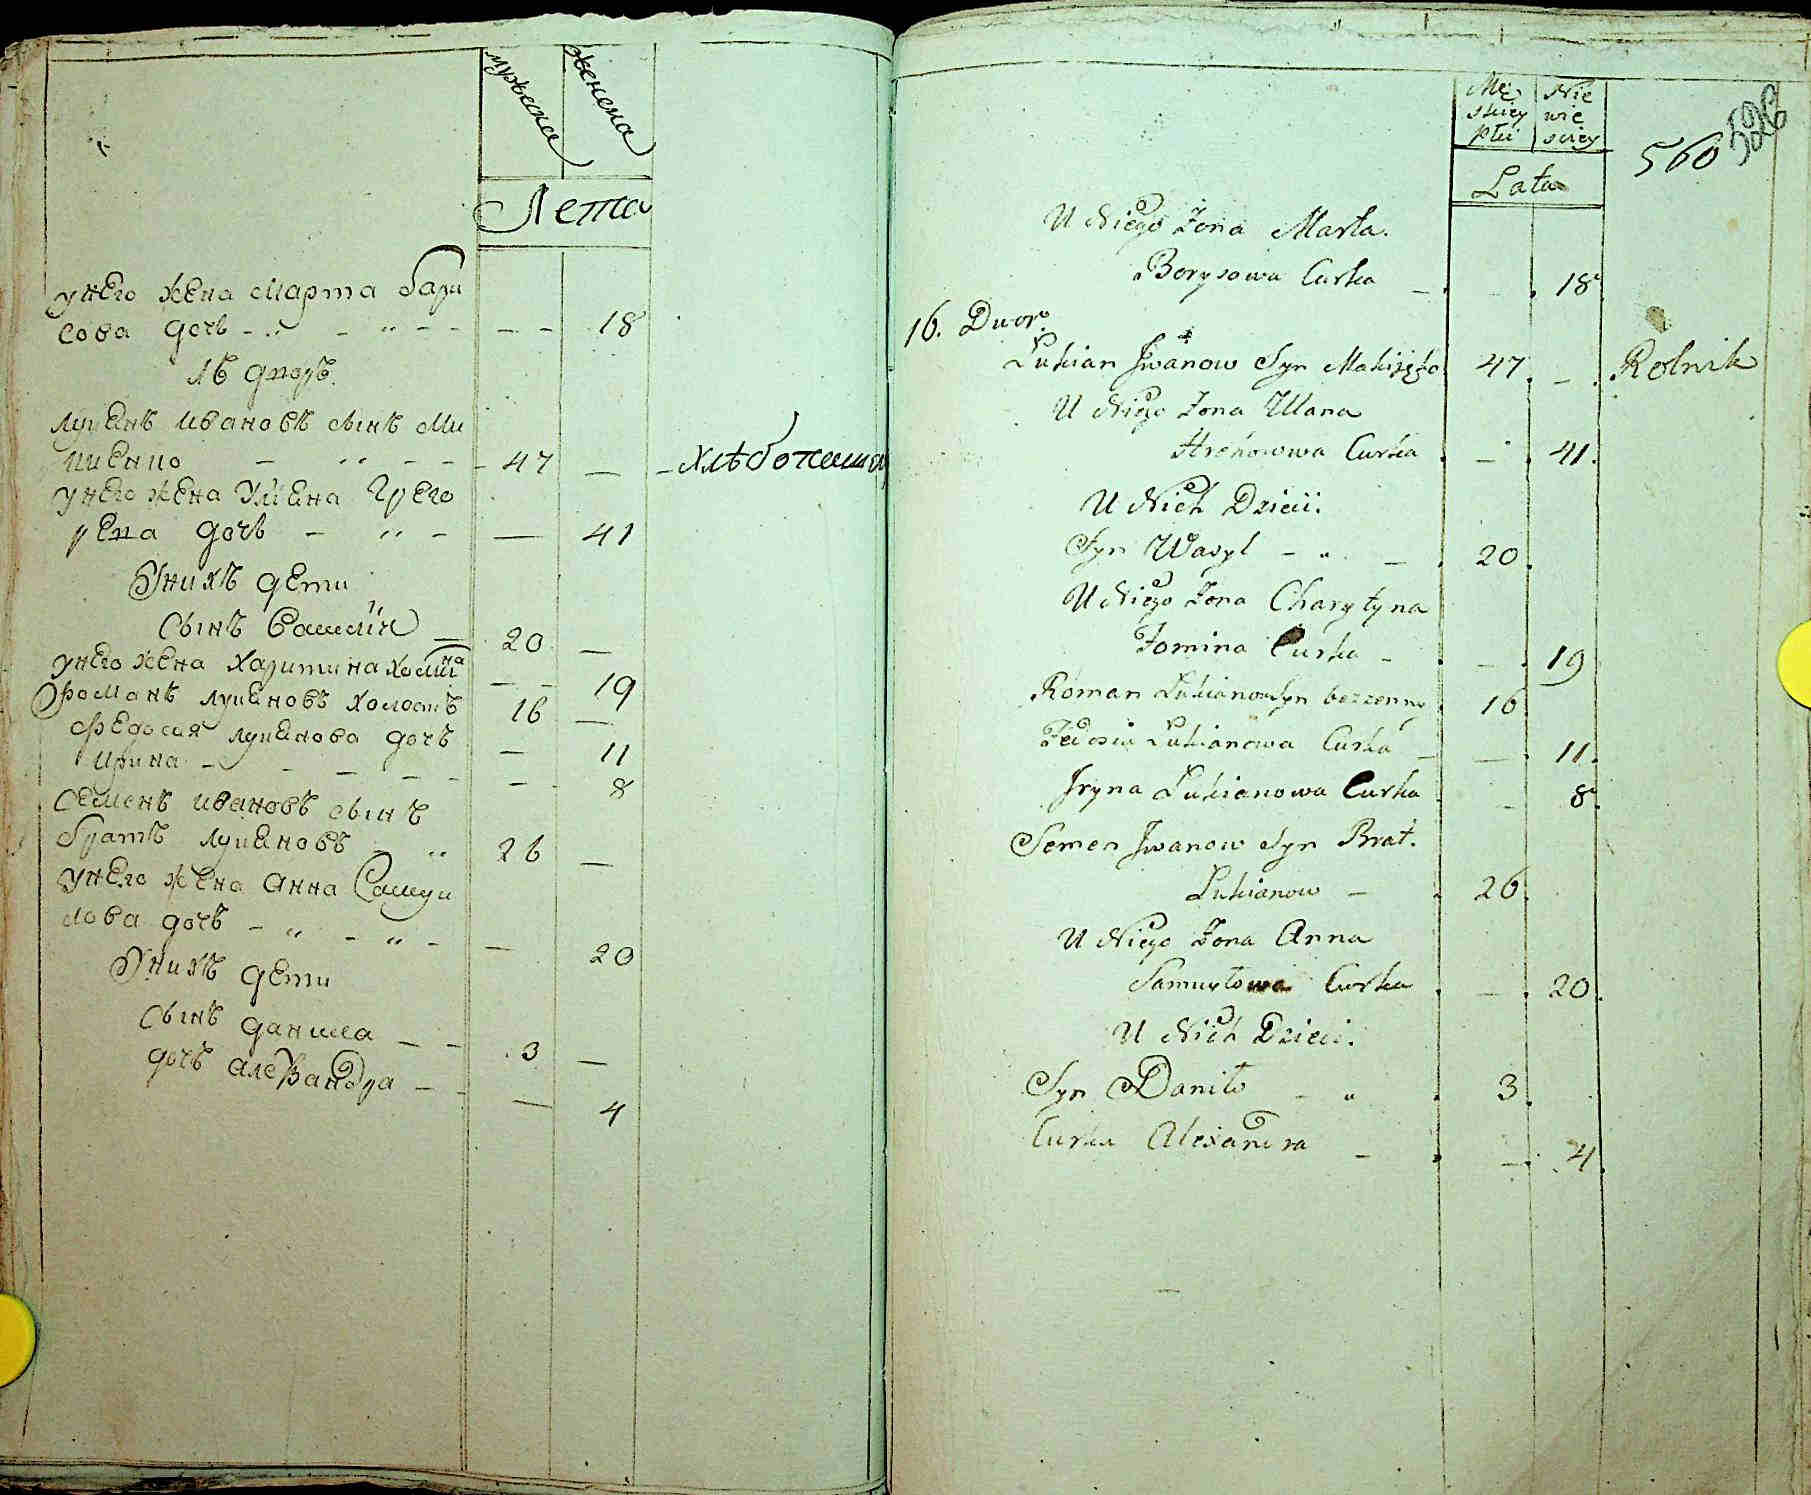 мужеска
женска
Лета
унего жена Марта бари
сова дочь - „ - „ - - - - 18
16 дворъ.
Лукянъ Ивановъ сынъ Ми
- „ - - 47 — - хлебопашец
унего жена Уляна
дочь - „ - — 41
Унихъ дети
Сынъ Василий — 20 —
унего жена Харитина Хомина - - 19
Романъ Лукяновъ холостъ 16 —
Федосия Лукянова дочъ — 11
Ирина - - - - - - - 8
Семенъ Ивановъ сынъ
братъ Лукяновъ - „ 26 —
унего жена Анна Самуи
лова дочь - „ - „ - — 20
Унихъ дети
Сынъ Данила - - 3 —
дочь Александра - - — 4
Mę
skiey
płci
Nie
wie
sciey
560 526
Lata
U Niego Zona Marta.
Borysowa Curka - - 18
16. Dwor.
Lukian Jwanow Syn 47. - Rolnik
U Niego Zona Ulana
Curka - 41.
U Nich Dzieci.
Syn Wasyl - „ - 20.
U Niego Zona Charytyna
Fomina Curka - - 19
Roman Lukianow Syn bezzenny 16
Fedosia Lukianowa Curka - - 11.
Jryna Lukianowa Curka - 8.
Semen Jwanow Syn Brat.
Lukianow - 26.
U Niego Zona Anna
Samuyłowa Curka - 20.
U Nich Dzieci.
Syn Daniło - „ 3.
Curka Alexandra - - 4.